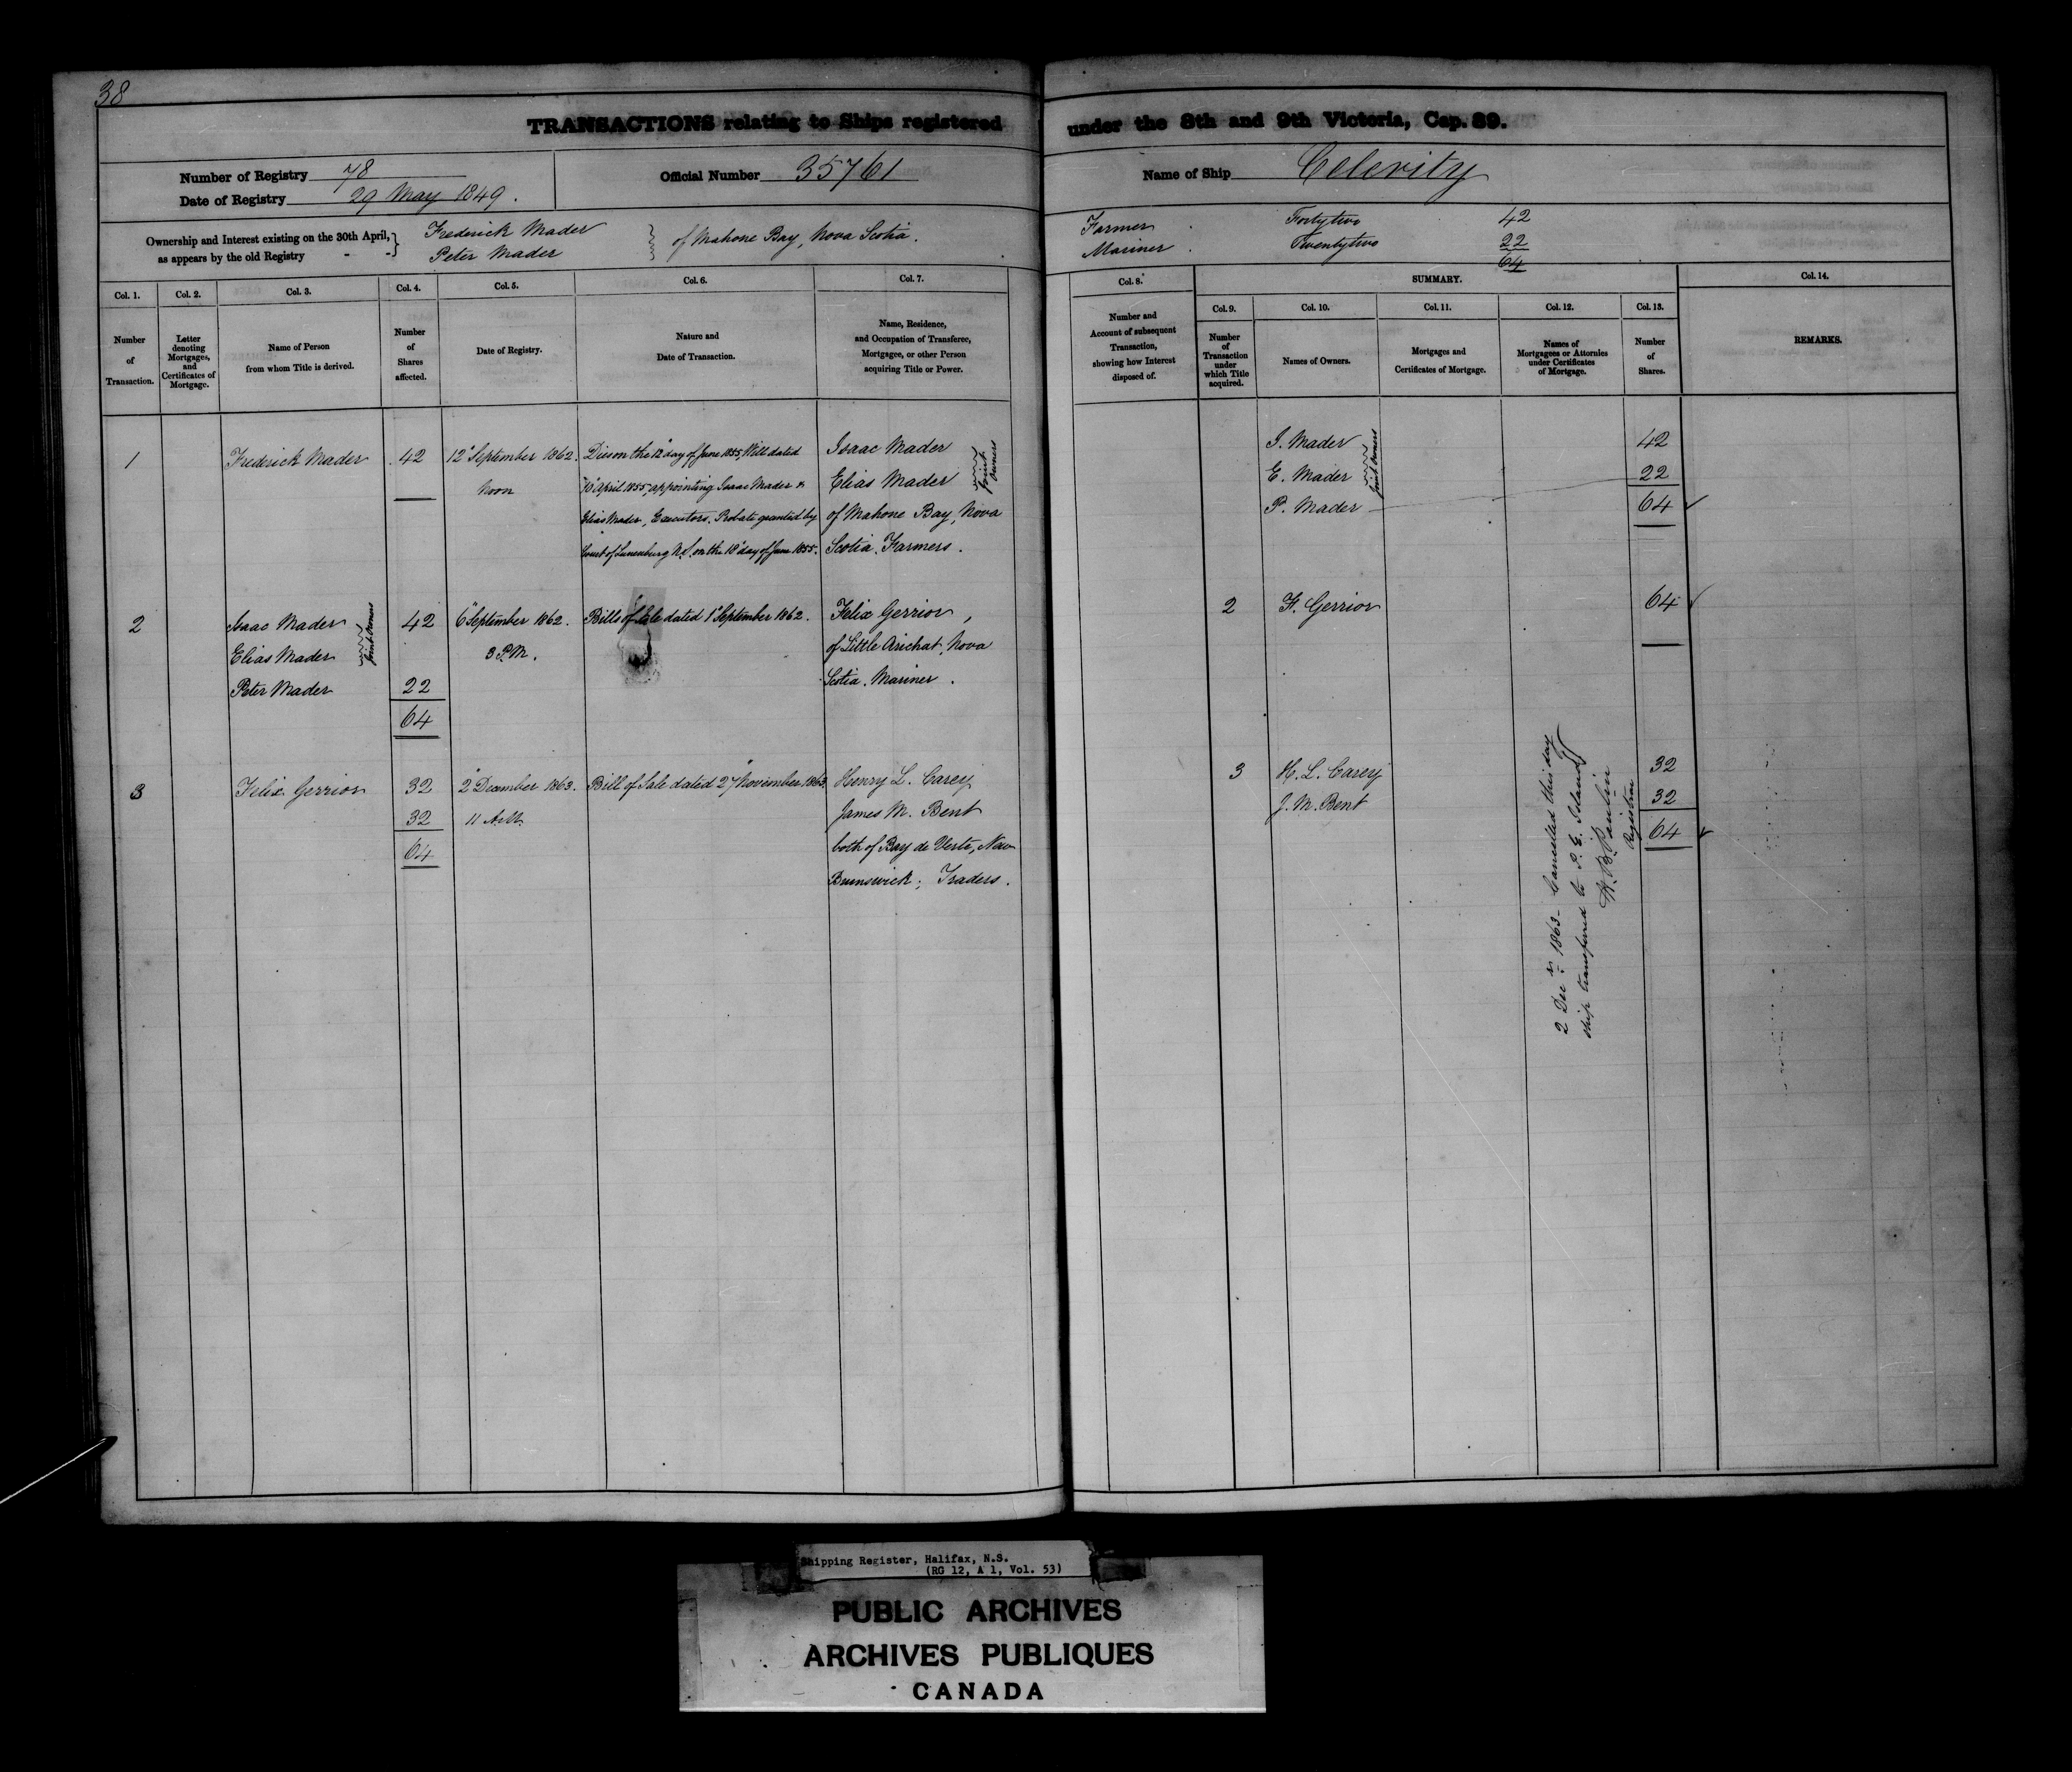 38
TRANSACTIONS relating to Ships registered under the 8th and 9th Victoria, Cap. 89.
Number of Registry 78
Date of Registry 29 May 1849.
Official Number 35761
Name of Ship Celerity
Ownership and Interest existing on the 30th April,
as appears by the old Registry - -
Frederick Mader
Peter Mader
of Mahone Bay, Nova Scotia.
Farmer. Fortytwo 42
Mariner. Twentytwo 22
64
Col. 1. Col. 2. Col. 3. Col. 4. Col. 5. Col. 6. Col. 7.
Number
of
Transaction.
Letter
denoting
Mortgages,
and
Certificates of
Mortgage.
Name of Person
from whom Title is derived.
Number
of
Shares
affected.
Date of Registry.
Nature and
Date of Transaction.
Name, Residence,
and Occupation of Transferee,
Mortgagee, or other Person
acquiring Title or Power.
Col. 8.
Number and
Account of subsequent
Transaction,
showing how Interest
disposed of.
SUMMARY.
Col. 9. Col. 10. Col. 11. Col. 12. Col. 13.
Number
of
Transaction
under
which Title
acquired.
Names of Owners.
Mortgages and
Certificates of Mortgage.
Names of
Mortgagees or Attornies
under Certificates
of Mortgage.
Number
of
Shares.
Col. 14.
REMARKS.
1
Frederick Mader
42
12" September 1862.
Noon
Died on the 12" day of June 1855, Will dated
"10" April 1855, appointing Isaac Mader &
Elias Mader, Executors. Probate granted by
Court of Lunenburg N.S. on the 18" day of June 1855.
Isaac Mader
Elias Mader
Joint
Owners
of Mahone Bay, Nova
Scotia. Farmers.
I. Mader
E. Mader
Joint Owners
P. Mader
42
22
64
2
Isaac Mader
Elias Mader
Joint Owners
Peter Mader
42
22
64
6" September 1862.
3 P.M.
Bills of Sale dated 1" September 1862.
Felix Gerrior,
of Little Arichat, Nova
Scotia. Mariner.
2
F. Gerrior
64
3
Felix Gerrior
32
32
64
2" December 1863.
11 A.M.
Bill of Sale dated 27" November 1863.
Henry L. Carey
James M. Bent
both of Bay de Verte, New
Brunswick; Traders.
3
H. L. Carey
J. M. Bent
32
32
64
2 Decr 1863 - Cancelled this day
ship transferred to P. E. Island
Registrar
Shipping Register, Halifax, N.S.
(RG 12, A 1, Vol. 53)
PUBLIC ARCHIVES
ARCHIVES PUBLIQUES
CANADA